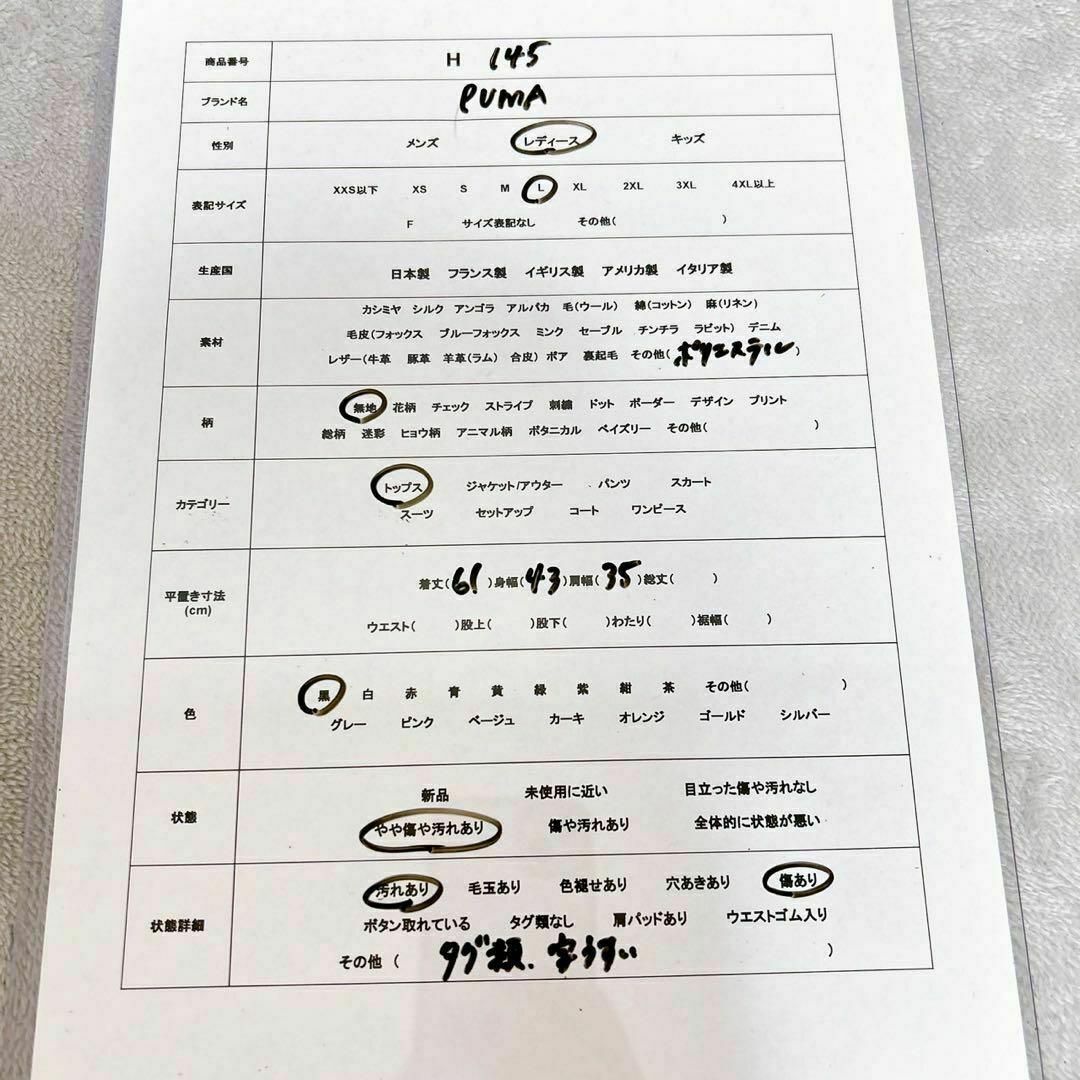 商品番号 H 145
ブランド名 PUMA
性別 メンズ レディース キッズ
表記サイズ
XXS以下 XS S M L XL 2XL 3XL 4XL以上
F サイズ表記なし その他( )
生産国 日本製 フランス製 イギリス製 アメリカ製 イタリア製
素材
カシミヤ シルク アンゴラ アルパカ 毛(ウール) 綿(コットン) 麻(リネン)
毛皮(フォックス ブルーフォックス ミンク セーブル チンチラ ラビット) デニム
レザー(牛革 豚革 羊革(ラム) 合皮) ボア 裏起毛 その他(ポリエステル)
柄
無地 花柄 チェック ストライプ 刺繍 ドット ボーダー デザイン プリント
総柄 迷彩 ヒョウ柄 アニマル柄 ボタニカル ペイズリー その他( )
カテゴリー
トップス ジャケット/アウター パンツ スカート
スーツ セットアップ コート ワンピース
平置き寸法
(cm)
着丈(61)身幅(43)肩幅(35)総丈( )
ウエスト( )股上( )股下( )わたり( )裾幅( )
色
黒 白 赤 青 黄 緑 紫 紺 茶 その他( )
グレー ピンク ベージュ カーキ オレンジ ゴールド シルバー
状態
新品 未使用に近い 目立った傷や汚れなし
やや傷や汚れあり 傷や汚れあり 全体的に状態が悪い
状態詳細
汚れあり 毛玉あり 色褪せあり 穴あきあり 傷あり
ボタン取れている タグ類なし 肩パッドあり ウエストゴム入り
その他( タグ類、字うすい )